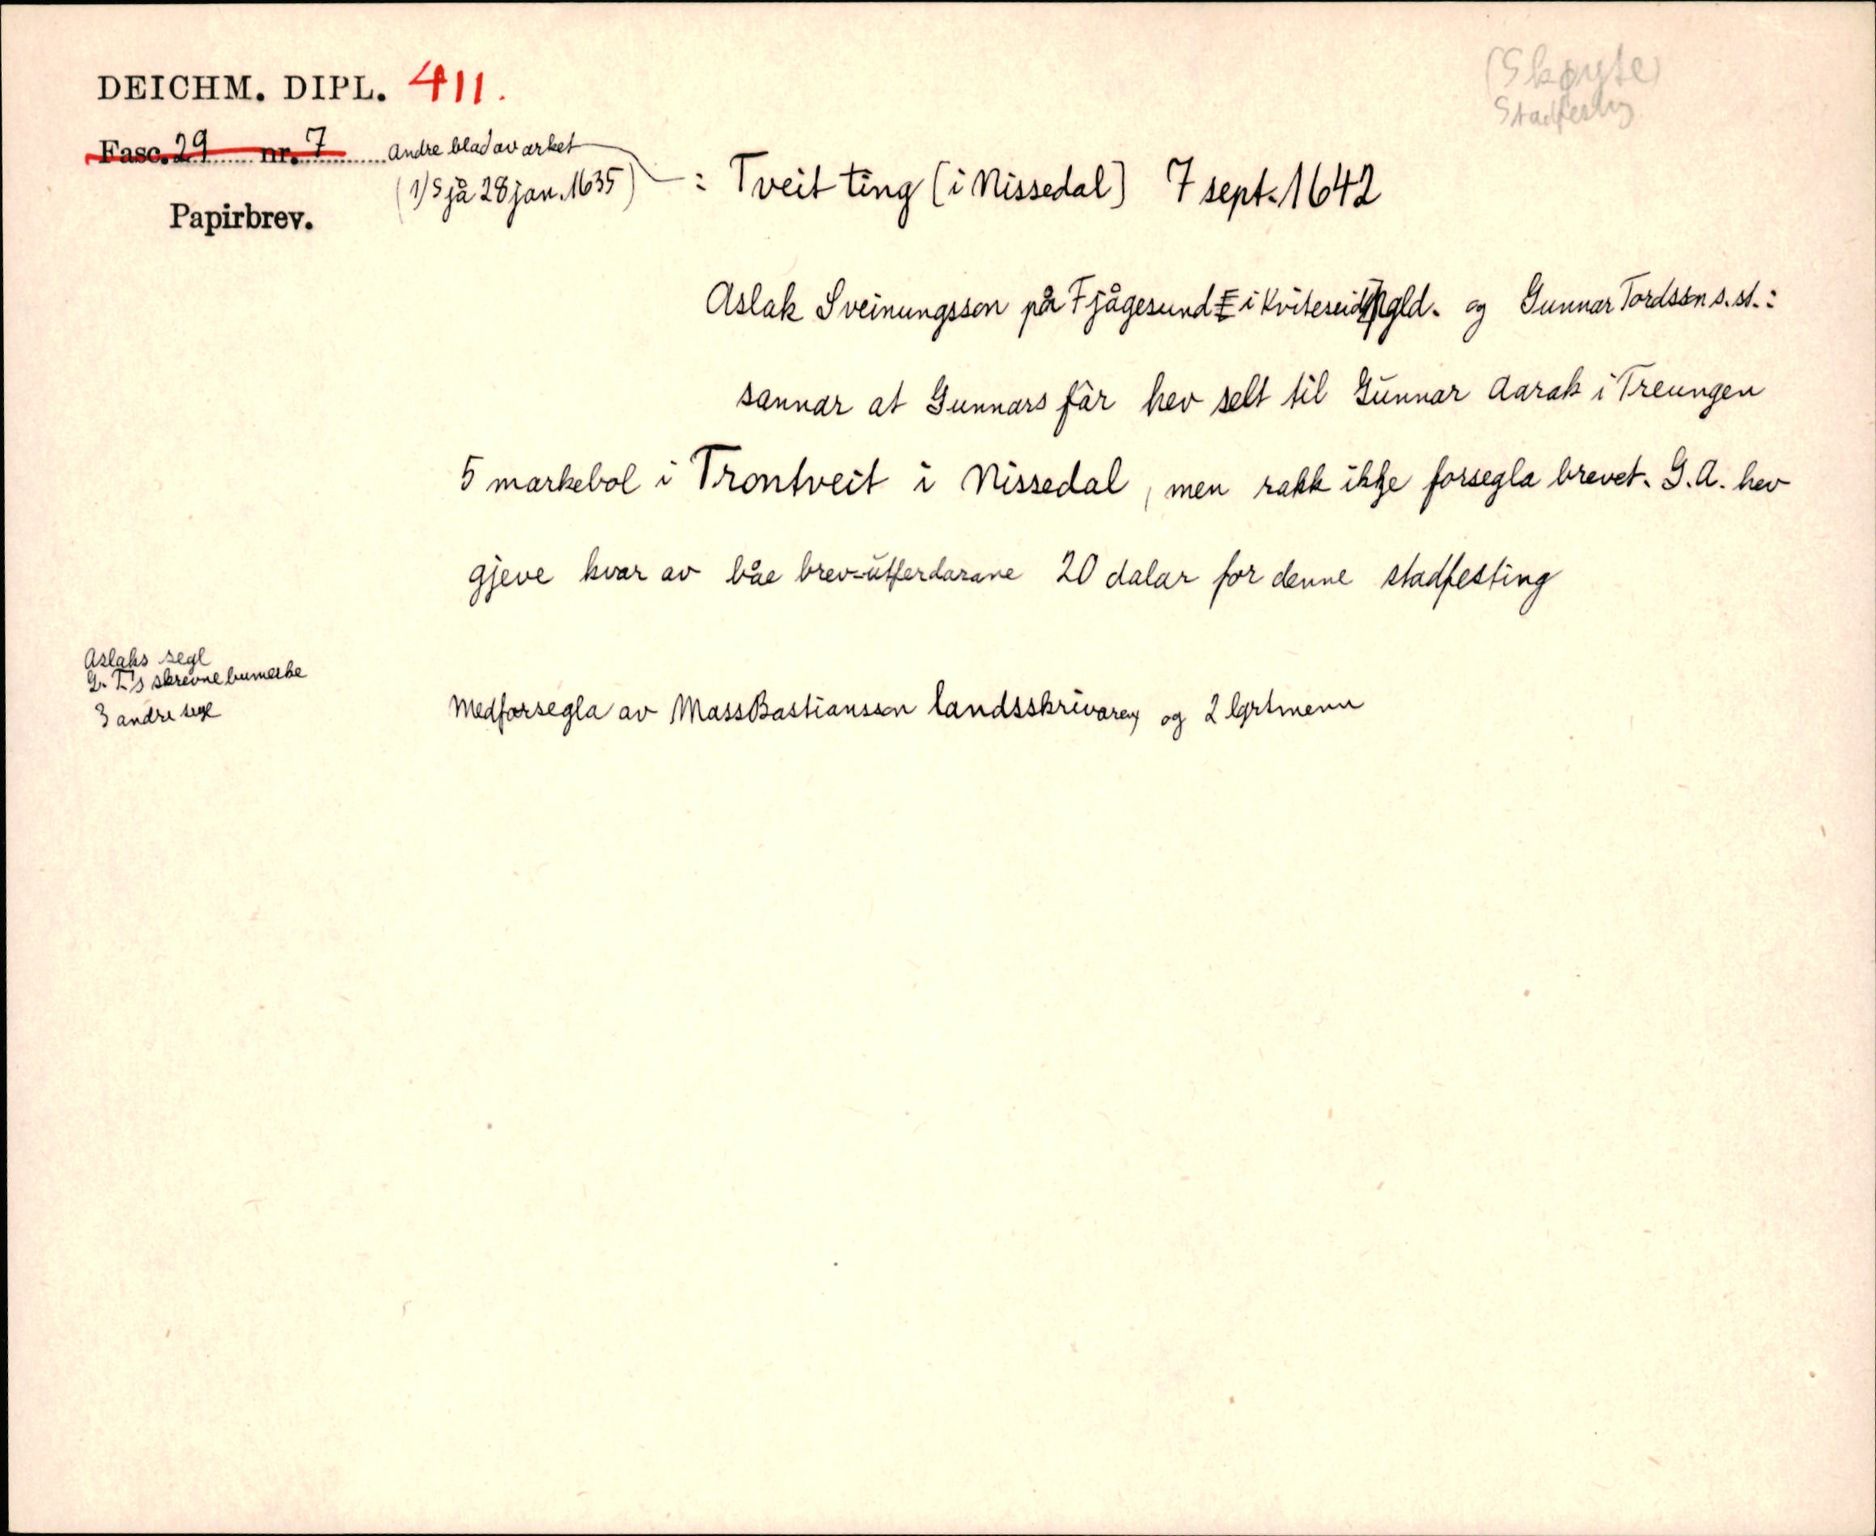 DEICHM. DIPL. 411.
(Skøyte)
Stadfestng
Fasc. 29 nr. 7 andre blad av arket
(1/ Sjå 28 jan. 1635) : Tveit ting [i Nissedal] 7 sept. 1642
Papirbrev.
Aslak Sveinungsson på Fjågesund i Kviteseid pgld. og Gunnar Tordssn s.st.:
sannar at Gunnars får hev selt til Gunnar Aarak i Treungen
5 markebol i Trontveit i Nissedal, men rakk ikkje forsegla brevet. G.A. hev
gjeve kvar av båe brev-utferdarane 20 dalar for denne stadfesting
Aslaks segl
G. T's skrevne bumerke
3 andre segl
Medforsegla av Mass Bastiansson landsskrivaren og 2 lgrtmenn